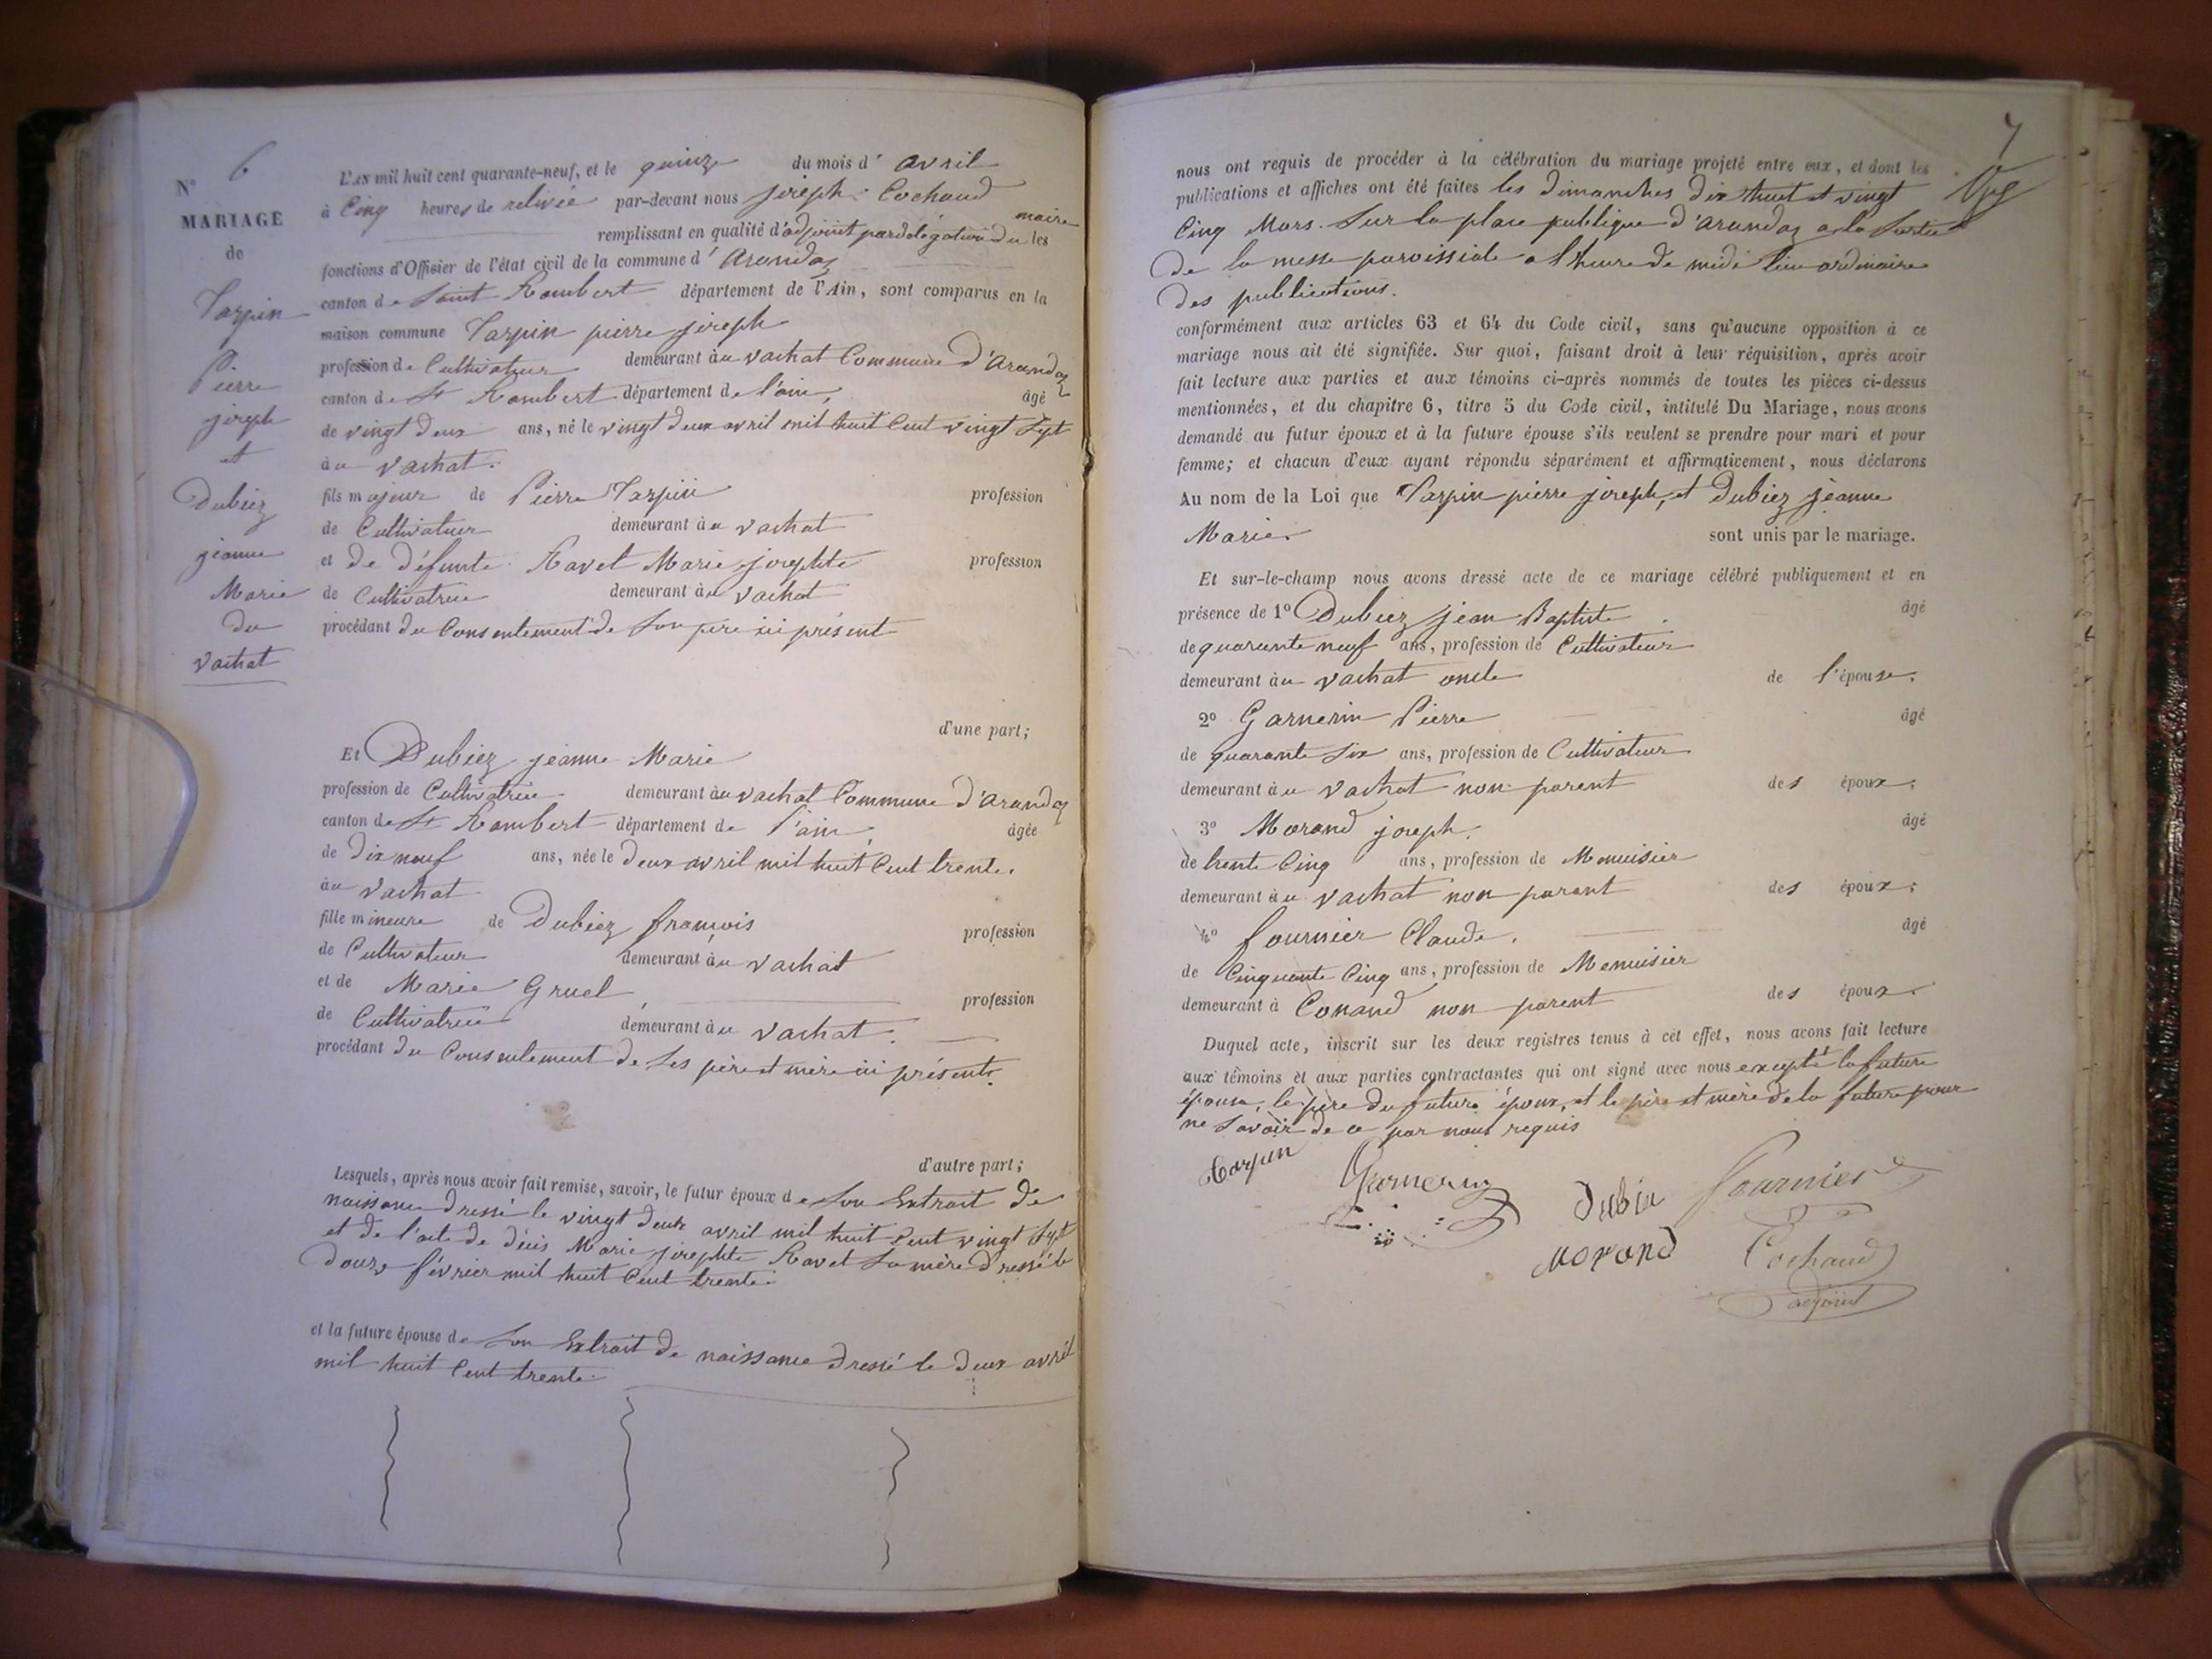 N° 6
MARIAGE
de
Tarpin
Pierre
joseph
et
Dubiez
jeanne
Marie
du
vachat
L'AN mil huit cent quarante-neuf, et le quinze du mois d' avril
à Cinq heures de relivée par-devant nous joseph Cochaud
remplissant en qualité d'adjoint par délégation du maire les
fonctions d'Officier de l'état civil de la commune d' Arandaz
canton de Saint Rambert département de l'Ain, sont comparus en la
maison commune Tarpin pierre joseph
profession de Cultivateur demeurant àu vachat Commune d'Arandaz
canton de St Rambert département de l'ain, âgé
de vingt deux ans, né le vingt deux avril mil huit Cent vingt Sept
àu vachat.
fils majeur de Pierre Tarpin profession
de Cultivateur demeurant àu vachat
et de défunte Ravet Marie josephte profession
de Cultivatrice demeurant àu vachat
procédant du Consentement de Son père ici présent
d'une part;
Et Dubiez jeanne Marie
profession de Cultivatrice demeurant àu vachat Commune d'Arandaz
canton de St Rambert département de l'ain, âgée
de Dix neuf ans, née le Deux avril mil huit Cent trente.
àu vachat
fille mineure de Dubiez françois profession
de Cultivateur demeurant àu vachat
et de Marie Gruel profession
de Cultivatrice demeurant àu vachat.
procédant du Consentement de Ses père et mère ici présents.
d'autre part;
Lesquels, après nous avoir fait remise, savoir, le futur époux de Son Extrait de
naissance dressé le vingt deux avril mil huit Cent vingt Sept
et de l'acte de décès Marie josephte Ravet Sa mère dressé le
douze février mil huit Cent trente.
et la future épouse de Son Extrait de naissance dressé le deux avril
mil huit Cent trente.
7
nous ont requis de procéder à la célébration du mariage projeté entre eux, et dont les
publications et affiches ont été faites les dimanches dix huit et vingt
Cinq Mars. Sur la place publique d'Arandaz a la Sortie
de la messe paroissiale a l'heure de midi lieu ordinaire
des publications.
conformément aux articles 63 et 64 du Code civil, sans qu'aucune opposition à ce
mariage nous ait été signifiée. Sur quoi, faisant droit à leur réquisition, après avoir
fait lecture aux parties et aux témoins ci-après nommés de toutes les pièces ci-dessus
mentionnées, et du chapitre 6, titre 5 du Code civil, intitulé Du Mariage, nous avons
demandé au futur époux et à la future épouse s'ils veulent se prendre pour mari et pour
femme; et chacun d'eux ayant répondu séparément et affirmativement, nous déclarons
Au nom de la Loi que Tarpin pierre joseph, et Dubiez jeanne
Marie sont unis par le mariage.
Et sur-le-champ nous avons dressé acte de ce mariage célébré publiquement et en
présence de 1° Dubiez jean Baptiste âgé
de quarante neuf ans, profession de Cultivateur
demeurant àu vachat oncle de l'épouse;
2° Garnerin Pierre âgé
de quarante Six ans, profession de Cultivateur
demeurant àu vachat non parent des époux;
3° Morand joseph. âgé
de trente Cinq ans, profession de Menuisier
demeurant àu vachat non parent des époux;
4° fournier Claude. âgé
de Cinquante Cinq ans, profession de Menuisier
demeurant à Conand non parent des époux.
Duquel acte, inscrit sur les deux registres tenus à cet effet, nous avons fait lecture
aux témoins et aux parties contractantes qui ont signé avec nous excepté la future
épouse, le père du future époux, et le père et mère de la future pour
ne Savoir de ce par nous requis
tarpin Garnerin Dubiez fournier
Morand Cochaud
adjoint